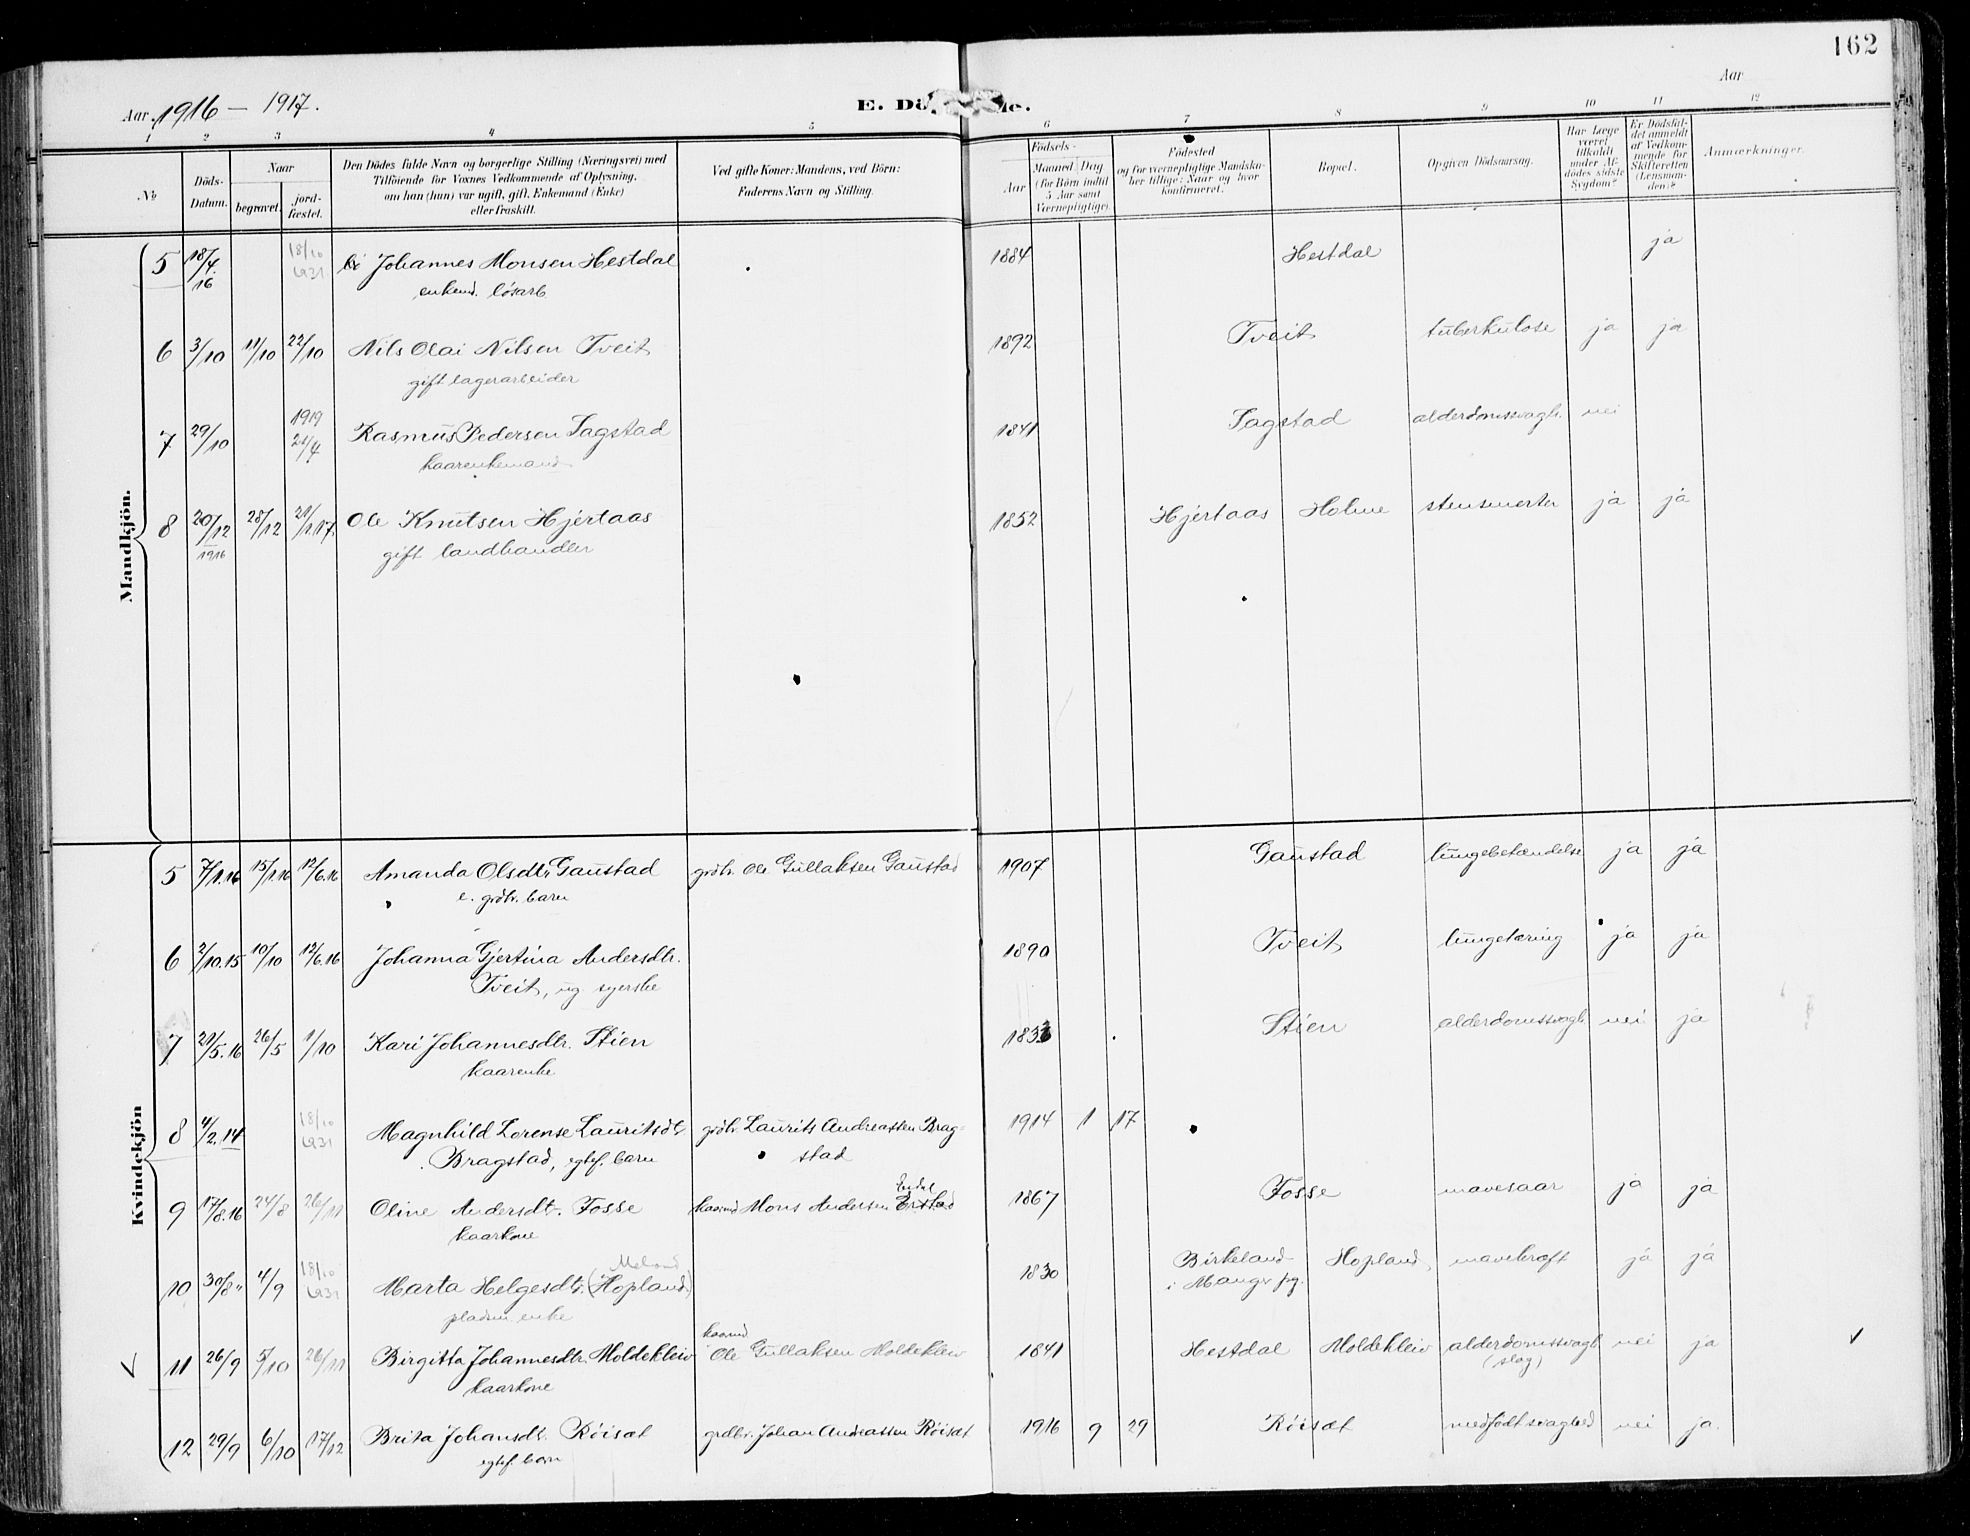 162
Aar 1916 — 1917.
E. Dö
Aar
1 2 3 4 5 6 7 8 9 10 11 12
No
Döds-Datum.
Naar
begravet.
jord-fæstet.
Den Dödes fulde Navn og borgerlige Stilling (Næringsvei) med
Tilföiende for Voxnes Vedkommende af Oplysning,
om han (hun) var ugift, gift, Enkemand (Enke)
eller fraskilt.
Ved gifte Koner: Mandens, ved Börn:
Faderens Navn og Stilling.
Födsels-
Aar
Maaned Dag
(for Börn indtil
5 Aar samt
Værnepligtige).
Födested
og for værnepligtige Mandska-
ber tillige: Naar og hvor
konfirmeret.
Bopæl.
Opgiven Dödsaarsag.
Har Læge
været
tilkaldt
under Af-
dödes sidste
Sygdom?
Er Dödsfal-
det anmeldt
af Vedkom-
mende for
Skifteretten
(Lensman-
den)?
Anmærkninger.
Mandkjön.
5 18/4. 16 18/10 1931 Johannes Monsen Hestdal 1884 Hestdal ja
enkemd. lösarb.
6 3/10 11/10 22/10 Nils Olai Nilsen Tveit 1892 Tveit tuberkulose ja ja
gift lagerarbeider
7 29/10 1919 21/4 Rasmus Pedersen Sagstad 1841 Sagstad alderdomssvagh. nei
kaarenkemand
8 20/12 1916 28/12 21/1.17. Ole Knutsen Hjertaas 1852 Hjertaas Holme stensmerter ja ja
gift landhandler
Kvindekjön
5 7/1.16 15/1.16 12/6.16 Amanda Olsdtr. Gaustad grdbr. Ole Gullaksen Gaustad 1907 Gaustad lungebetændelse ja ja
e. grdbr. barn
6 2/10.15 10/10 12/6.16 Johanna Gjertina Andersdtr. 1890 Tveit lungetæring ja ja
Tveit, ug. syerske
7 21/5.16 26/5 1/10 Kari Johannesdtr. Stien 1833 Stien alderdomssvagh. nei ja
kaarenke
8 4/2.14 18/10 1931 Magnhild Lorense Lauritsdtr. grdbr. Laurits Andreassen Brag- 1914 1 17
Bragstad, egtef. barn stad
9 17/8.16 24/8 26/11 Oline Andersdtr. Fosse kaarmd Mons Andersen 1867 Fosse mavesaar ja ja
kaarkone
10 30/8 " 4/9 18/10 1931 Marta Helgesdtr. (Hopland) Meland 1830 Birkeland i Mangr pg. Hopland mavekræft ja ja
pladsm. enke
11 26/9 5/10 26/11 Birgitta Johannesdtr. Moldekleiv kaarmd Ole Gullaksen Moldekleiv 1841 Hestdal Moldekleiv alderdomssvagh. (slag) nei ja
kaarkone
12 29/9 6/10 17/12 Brita Johansdtr. Röisæt grdbr. Johan Andreassen Röisæt 1916 9 29 Röisæt medfödt svaghed nei ja.
egtef. barn